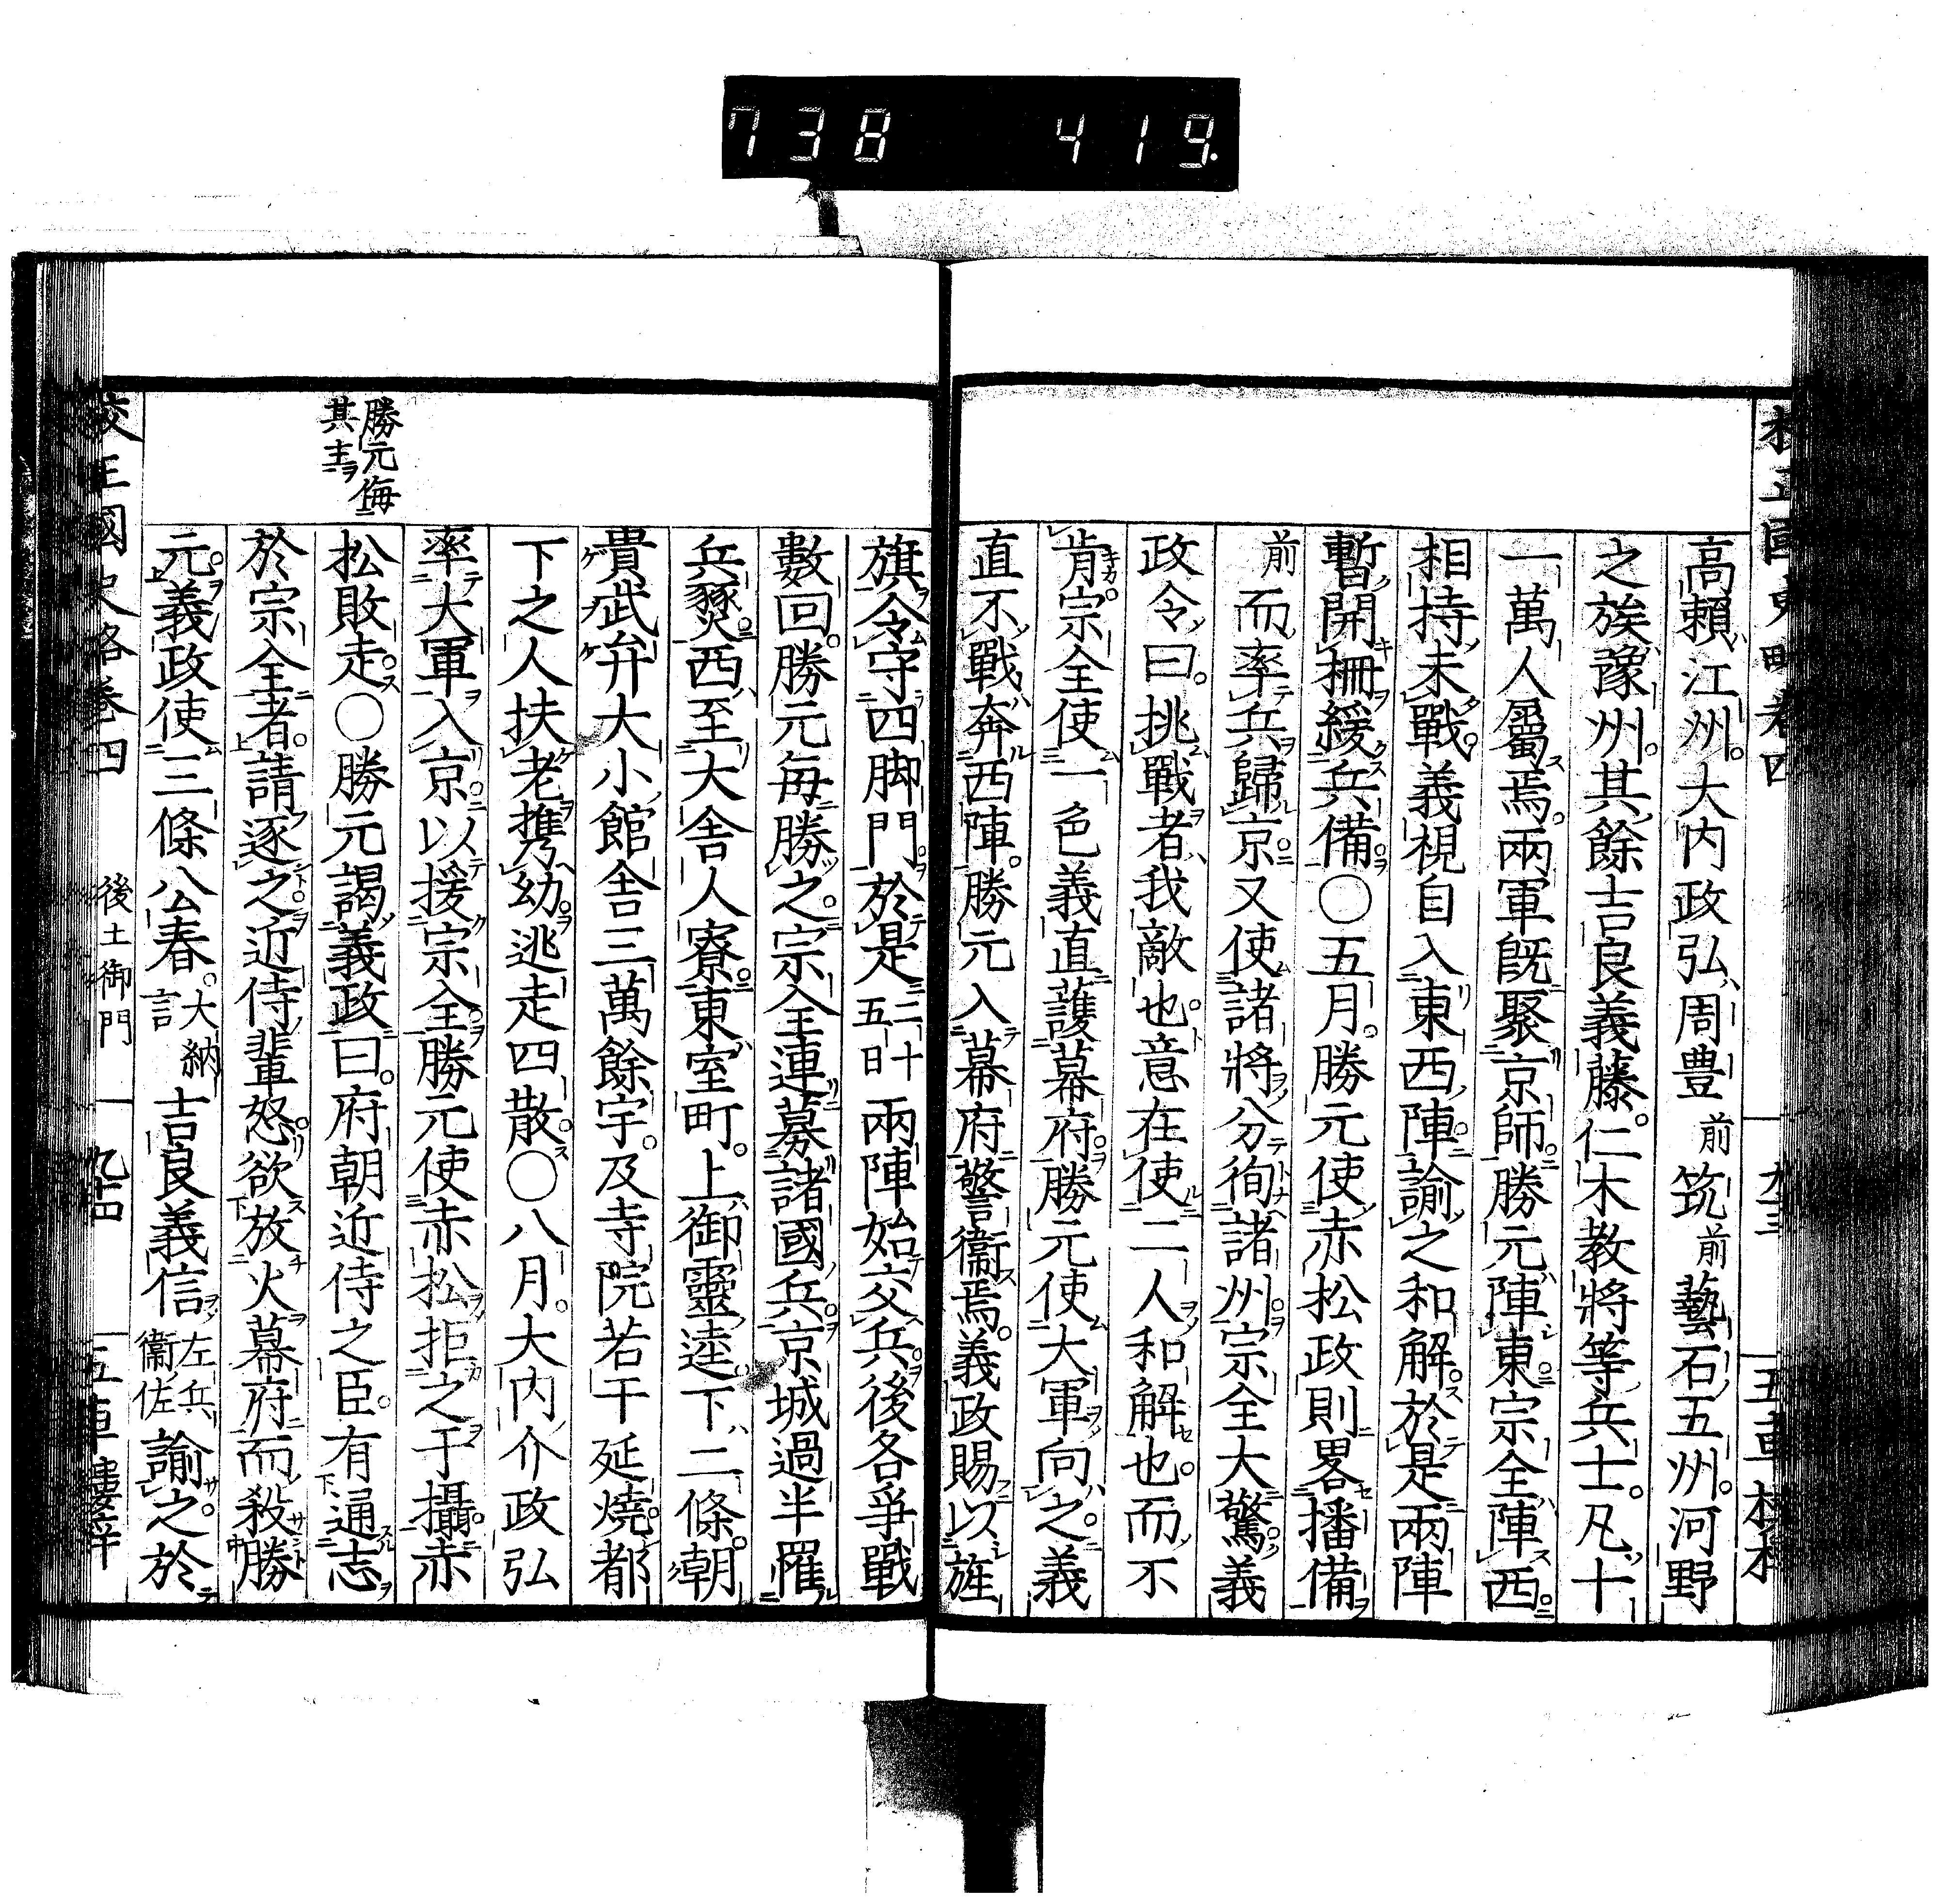 738 419.
校正國史略卷四 九十三 五車樓梓
高賴江州。大内政弘周豊前筑前藝石五州。河野
之族豫州。其餘吉良義藤。仁木教將等兵士。凡十
一萬人屬焉。兩軍既聚京師。勝元陣東。宗全陣西。
相持未戰。義視自入東西陣。諭之和解。於是兩陣
暫開柵緩兵備。〇五月。勝元使赤松政則畧播備
前而率兵歸京。又使諸將分徇諸州。宗全大驚。義
政令曰。挑戰者我敵也。意在使二人和解也。而不
肯。宗全使一色義直護幕府。勝元使大軍向之。義
直不戰奔西陣。勝元入幕府警衞焉。義政賜以旌
旗。令守四脚門。於是二十五日兩陣始交兵。後各爭戰
數回。勝元每勝之。宗全連募諸國兵。京城過半罹
兵燹。西至大舍人寮。東室町。上御靈逵。下二條。朝
貴武弁大小館舍三萬餘宇。及寺院若干延燒。都
下之人扶老携幼。逃走四散。〇八月。大内介政弘
率大軍入京。以援宗全。勝元使赤松拒之于攝。赤
松敗走。〇勝元謁義政曰。府朝近侍之臣。有通志
於宗全者。請逐之。近侍輩怒。欲放火幕府而殺勝
元。義政使三條公春。大納言吉良義信左兵衞佐諭之。於
勝元侮
其主
校正國史略卷四 後土御門 九十四 五車樓梓